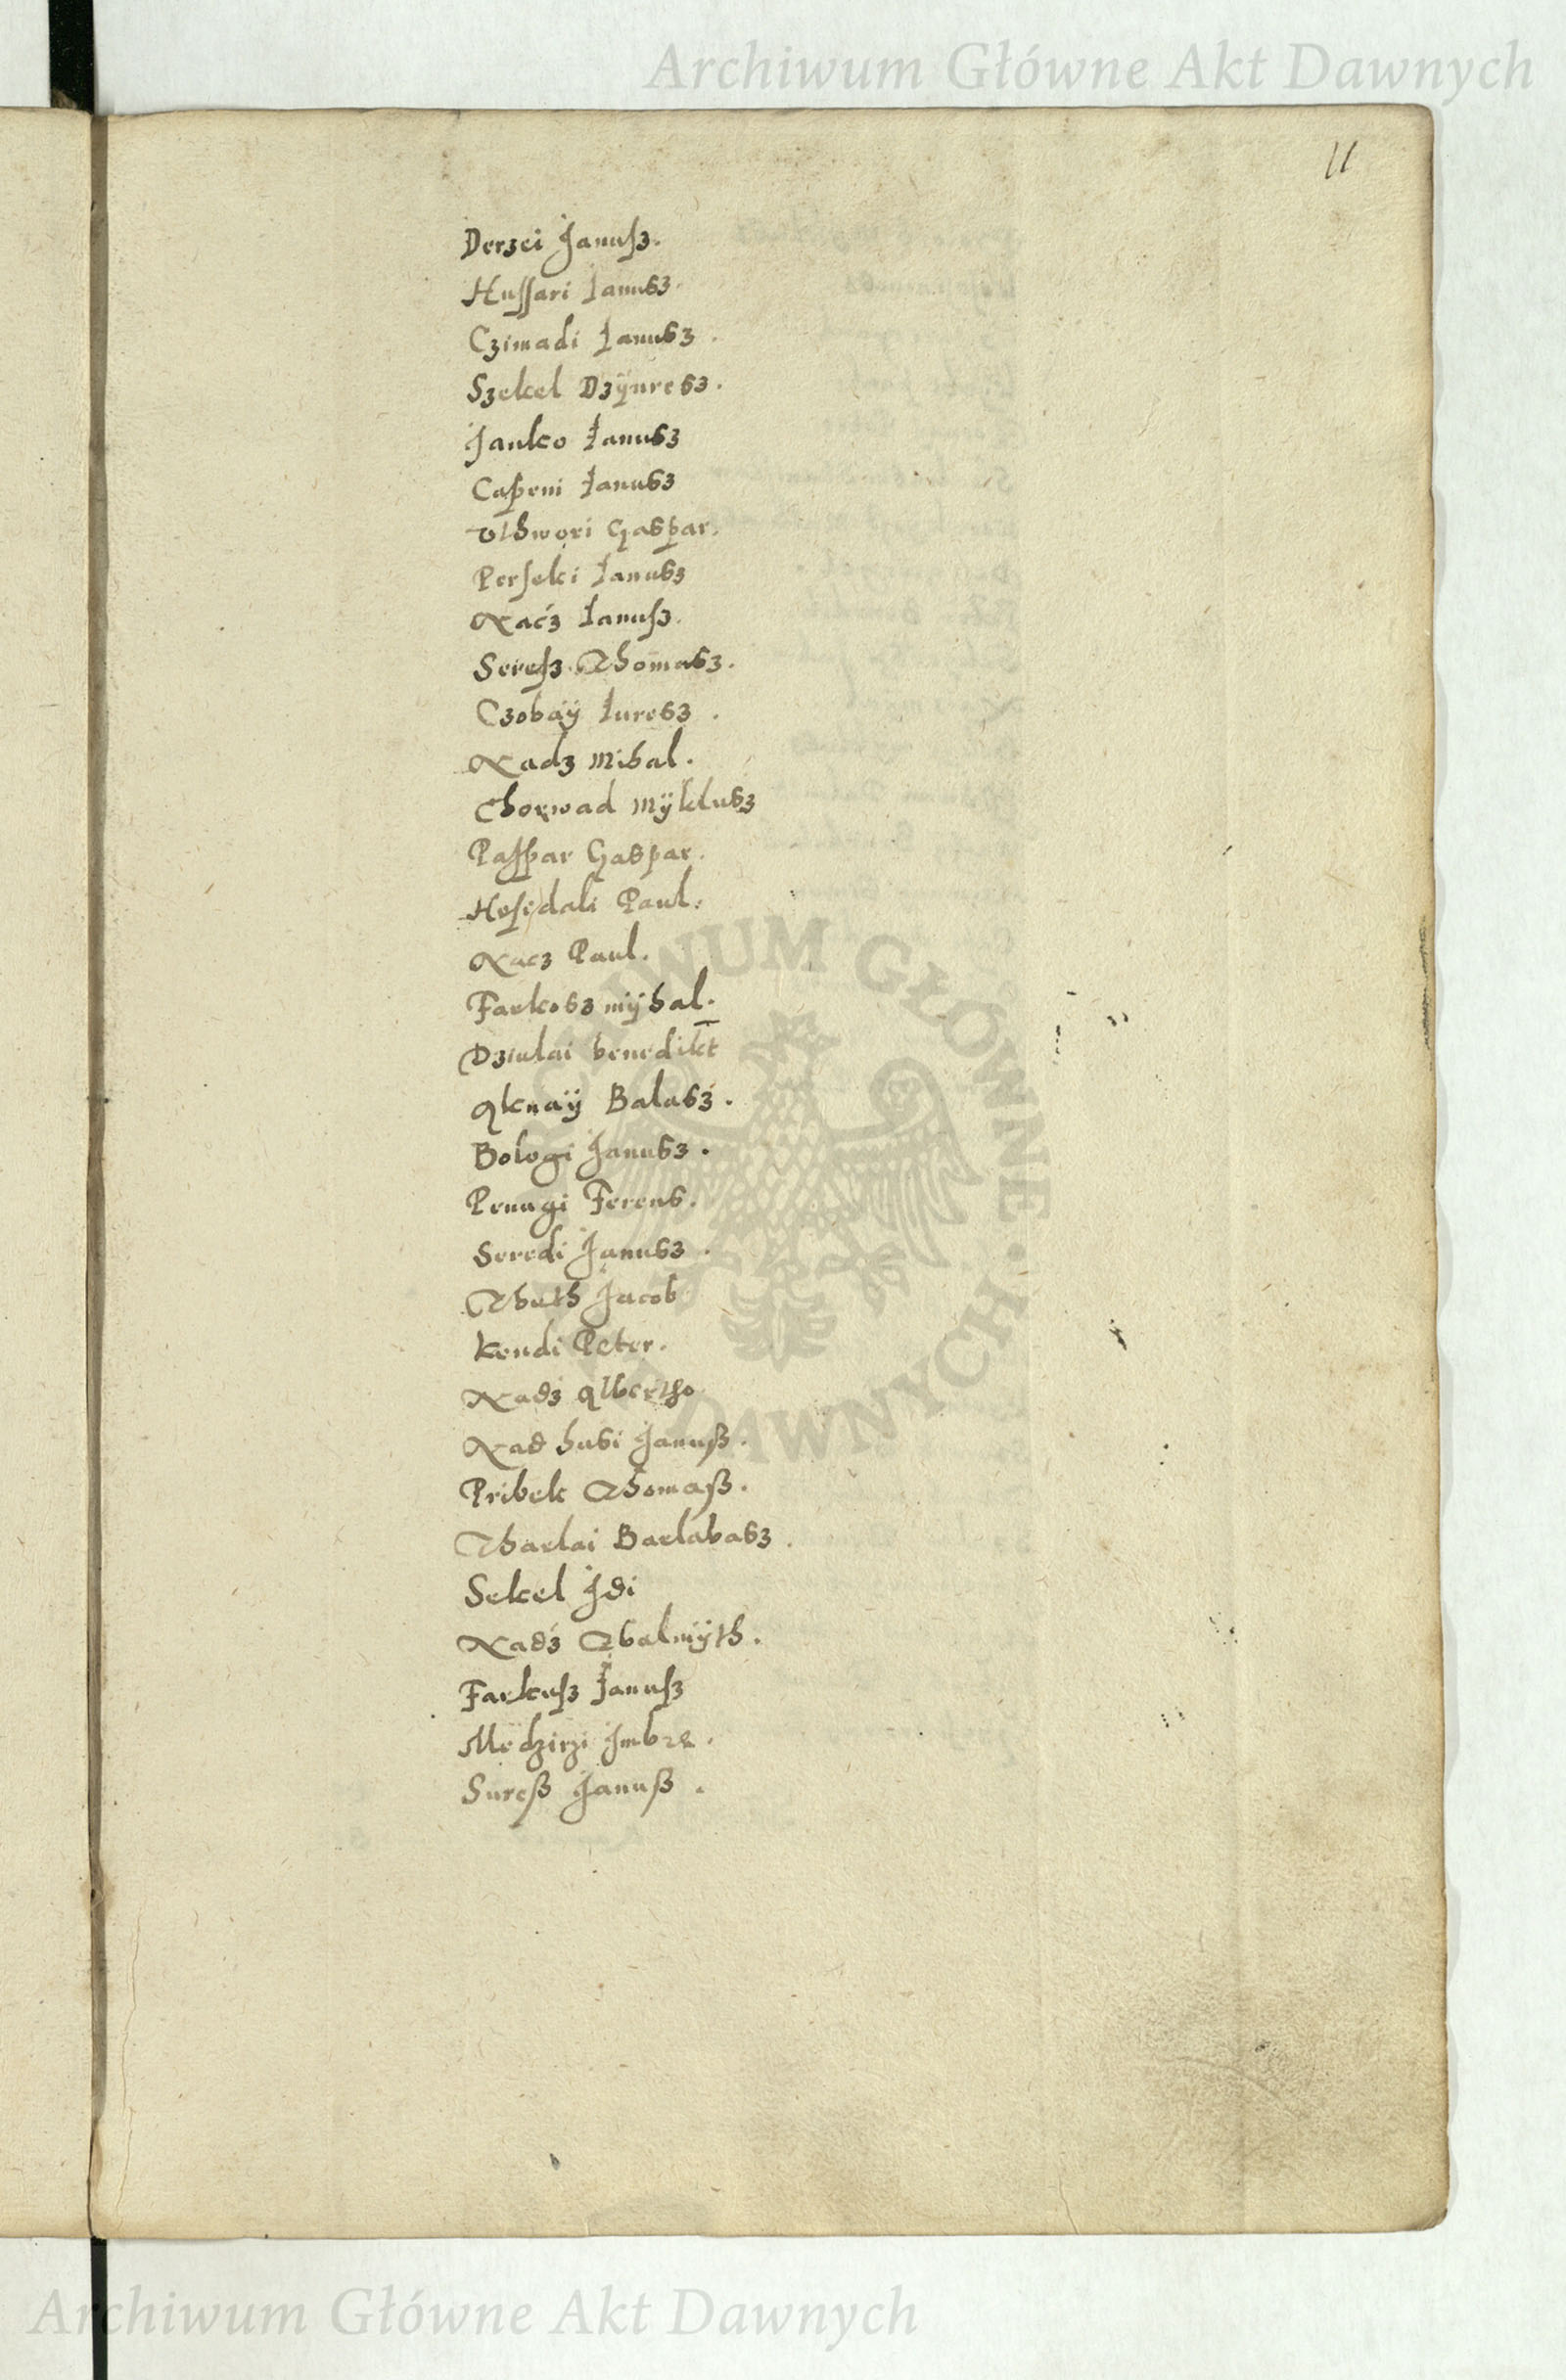 Archiwum Główne Akt Dawnych
11
Derzei Janusz.
Hussari Janusz.
Czimadi Janusz.
Szekel Dzÿnresz.
Janko Janusz
Capeni Janusz
Othwori Gaspar.
Perseki Janusz
Nacz Janusz.
Seresz Thomasz.
Czobaÿ Juresz.
Nadz Mihal.
Chorwad Mÿklusz
Paspar Gaspar.
Hosidali Paul.
Nacz Paul.
Farkosz mÿhal.
Dziulai benedikt
Aknaÿ Balasz.
Bologi Janusz.
Penagi Ferens.
Seredi Janusz.
Thuth Jacob
Kendi Peter.
Nadz Albertho
Nad husi Janusz.
Pribek Thomasz.
Tharlai Barlabasz.
Sekel Idi
Nadz Balmÿth.
Farkusz Janusz
Medzirzi Imbre.
Suresz Janusz.
ARCHIWUM GŁÓWNE • AKT DAWNYCH •
Archiwum Główne Akt Dawnych